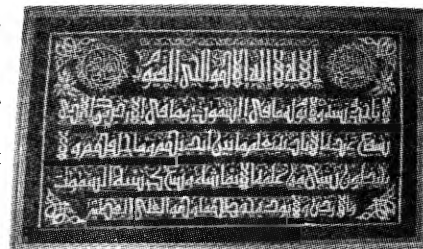 الله لا اله الا هو الحي القيوم
لا تاخذه سنة ولا نوم له ما في السموات وما في الارض من ذا الذي
يشفع عنده الا باذنه يعلم ما بين ايديهم وما خلفهم ولا
يحيطون بشيء من علمه الا بما شاء وسع كرسيه السموات
والارض ولا يؤده حفظهما وهو العلي العظيم